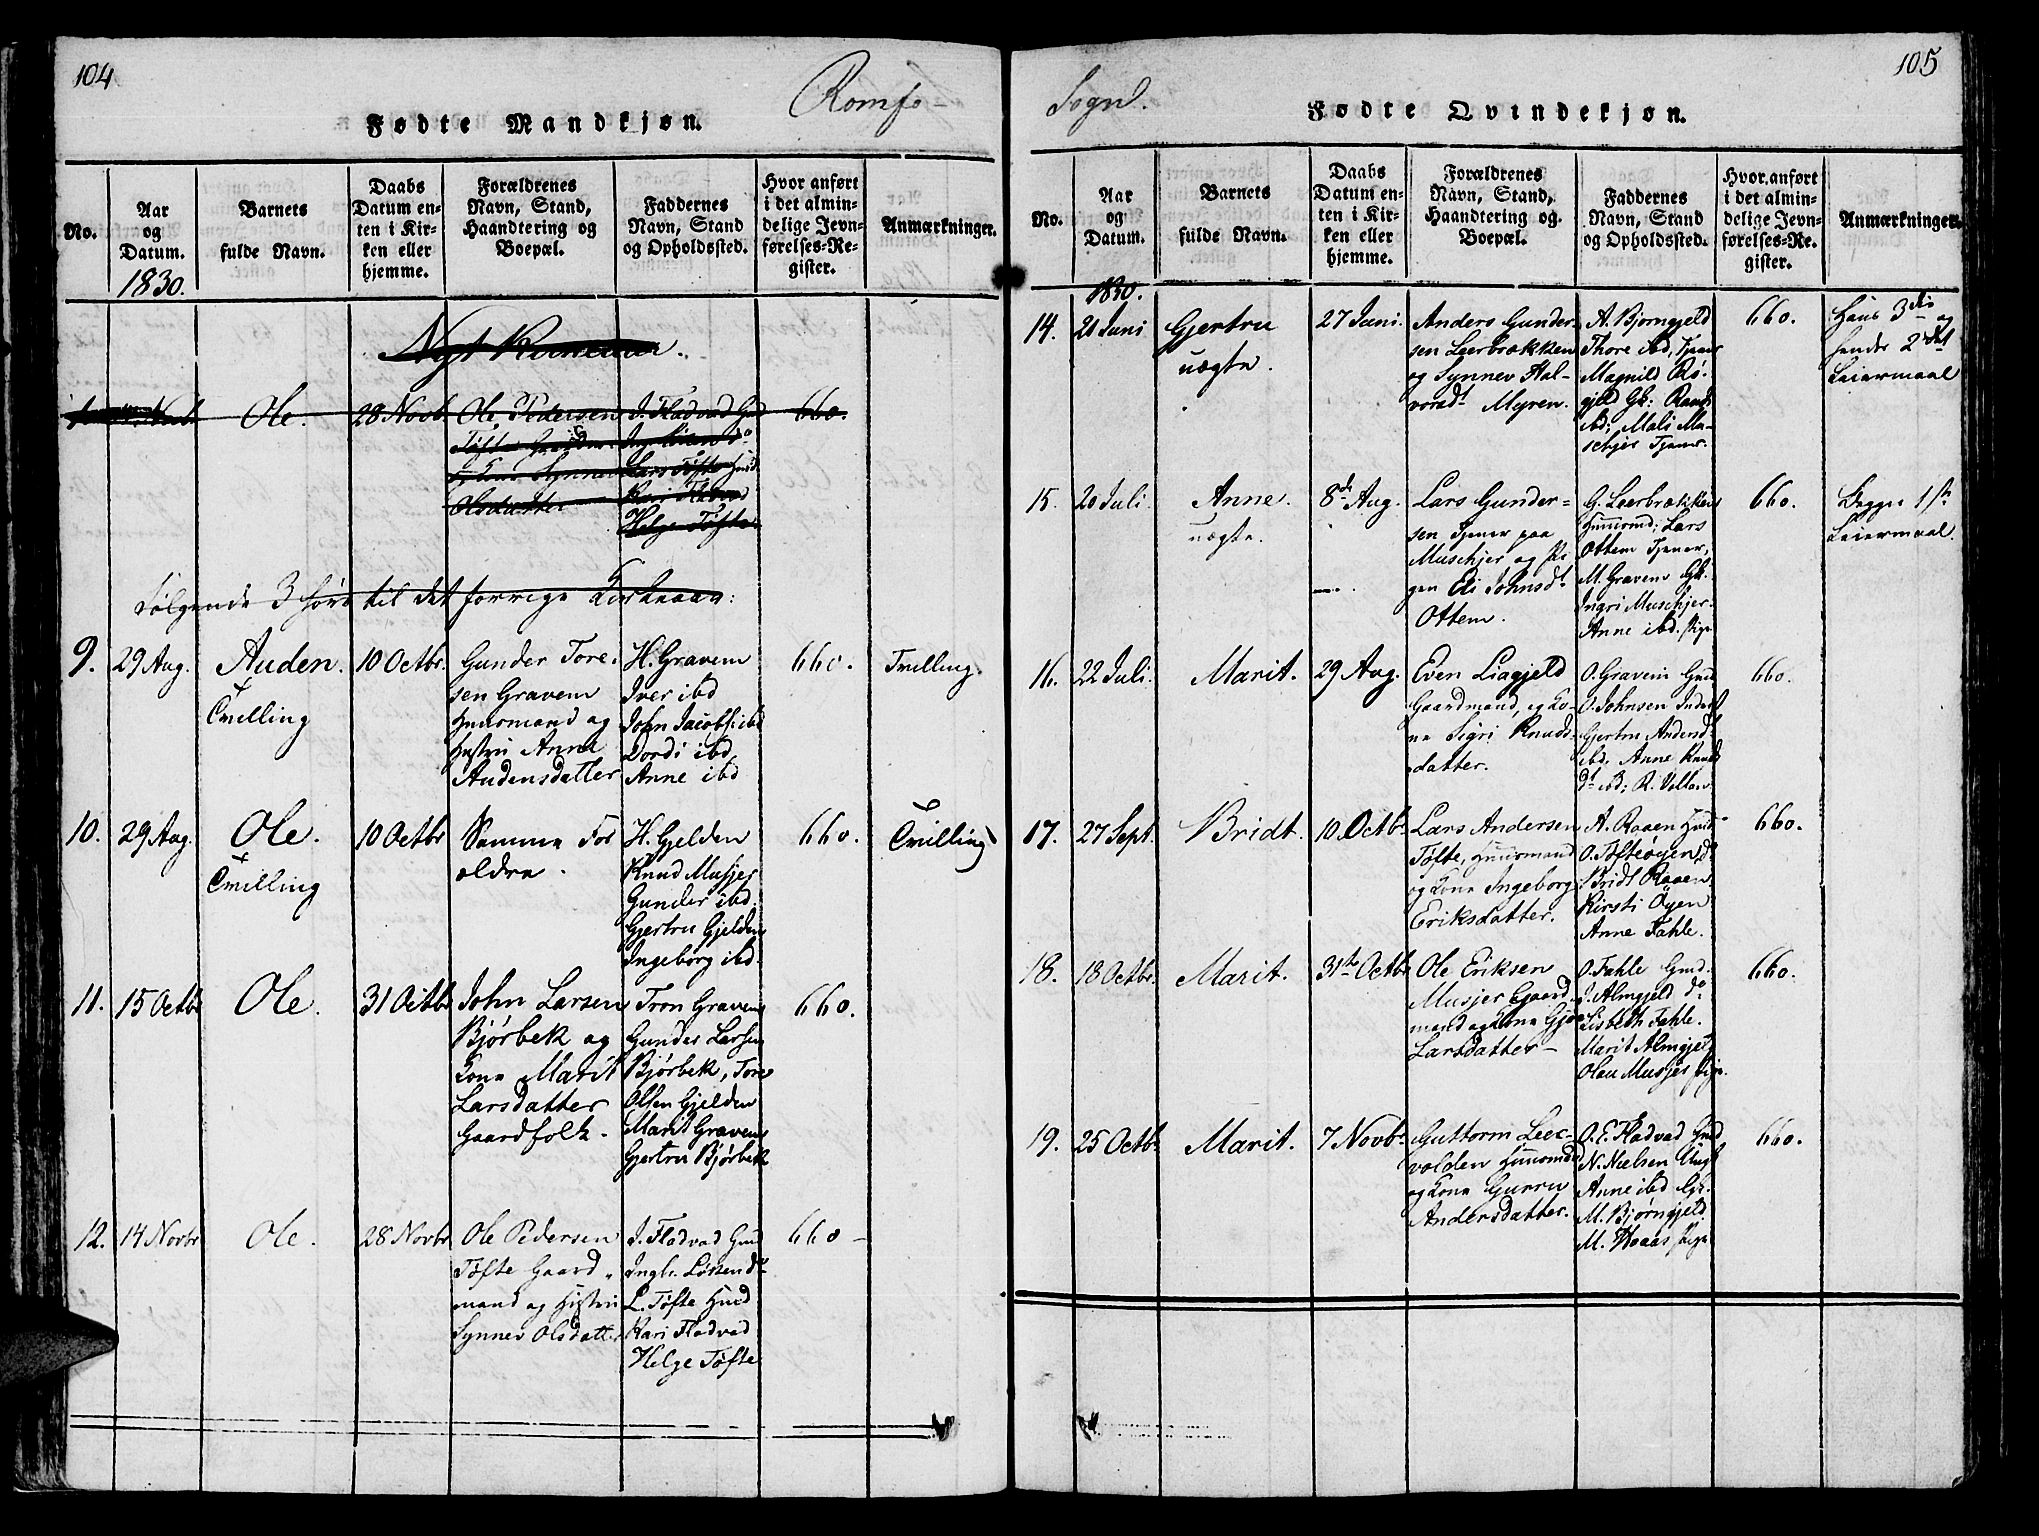 104
Romfo
Fødte Mandkjøn.
No.
Aar
og
Datum.
1830.
Barnets
fulde Navn.
Daabs
Datum en-
ten i Kir-
ken eller
hjemme.
Forældrenes
Navn, Stand,
Haandtering og
Boepæl.
Faddernes
Navn, Stand
og Opholdssted.
Hvor anført
i det almin-
delige Jevn-
førelses-Re-
gister.
Anmærkninger.
Nyt
Ole.
28 Novb
Ole Pedersen
Tøfte
Synnev
Olsdatter
J. Fladvad Gmd
Lars Tøfte Huusd
Kari Fladvad
Helge Tøfte
660.
Følgende 3 høre til det forrige Kirkeaar:
9.
29 Aug.
Auden.
Tvilling
10 Octbr.
Gunder Tore-
sen Gravem
Huusmand og
Hustru Anne
Audensdatter
H. Gravem
Iver ibd
John Jacobs. ibd
Dordi ibd
Anne ibd
660.
Tvilling.
10.
29 Aug.
Ole.
Tvilling
10 Octbr
Samme For
ældre.
H. Gjelden
Knud Musjer
Gunder ibd.
Gjertru Gjelden
Ingeborg ibd.
660.
Tvilling
11.
15 Octbr
Ole.
31 Octbr
John Larsen
Bjørbek og
Kone Marit
Larsdatter
Gaardfolk.
Tron Gravem
Gunder Larsen
Bjørbek, Tore
Olsen Gjelden
Marit Gravem
Gjertru Bjørbek
660.
12.
14 Novbr
Ole.
28 Novbr
Ole Pedersen
Tøfte Gaard-
mand og Hustru
Synnev Olsdatter
J. Fladvad Gmd
Ingbr. Løssen do
L. Tøfte Hmd
Kari Fladvad
Helge Tøfte
660
105
Sogn.
Fødte Qvindekjøn.
No.
Aar
og
Datum.
1830.
Barnets
fulde Navn.
Daabs
Datum en-
ten i Kir-
ken eller
hjemme.
Forældrenes
Navn, Stand,
Haandtering og
Boepæl.
Faddernes
Navn, Stand
og Opholdssted.
Hvor anført
i det almin-
delige Jevn-
førelses-Re-
gister.
Anmærkninger.
14.
21 Juni
Gjertru
uægte.
27 Juni.
Anders Gunder
sen Leerbrækken
og Synnev Hal-
vorsdt Myren.
A. Bjørngjeld
Thore ibd, Tjener
Magnild Rø-
gjeld Gk: Randi
ibd; Mali Mu-
schjer Tjener.
660.
Hans 3die og
hendes 2det
Leiermaal
15.
20 Juli.
Anne.
uægte.
8de Aug.
Lars Gunder-
sen Tjener paa
Muschjer og Pi
gen Eli Johnsdt
Ottem.
G. Leerbrækken
Huusmd; Lars
Ottem Tjener,
M. Gravem Gk.
Ingri Muschjer.
Anne ibd. Pige
660.
Begges 1ste
Leiermaal.
16.
22 Juli.
Marit.
29 Aug.
Even Liagjeld
Gaardmand, og Ko-
ne Sigri Knuds-
datter.
O. Gravem Gmd
O. Johnsen Inderst
Gjertru Andersdt
ibd. Anne Knuds
dt ibd; R. Vollan
660.
17.
27 Sept.
Bridt.
10. Octbr
Lars Andersen
Tøfte, Huusmand
og Kone Ingeborg
Eriksdatter.
A. Raaen Hmd
O. Tøfteøyen do
Bridt Raaen
Kirsti Øyen
Anne Fahle.
660.
18.
18 Octbr.
Marit.
31te Octbr
Ole Eriksen
Musjer Gaard
mand og Kone Gjøe
Larsdatter
O. Fahle Gmd.
J. Almgjeld do
Lisbeth Fahle.
Marit Almgjeld
Olau Musjer Pige.
660.
19.
25 Octbr
Marit.
7 Novbr
Guttorm Leer-
volden Huusmand
og Kone Gurru
Andersdatter.
O. E. Fladvad Gmd
N. Nielsen Ungk
Anne ibd Gk.
M. Bjørngjeld
M. Hoaas Pige
660.